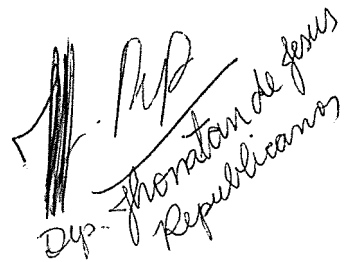 Dep. Jhonatan de Jesus
Republicanos